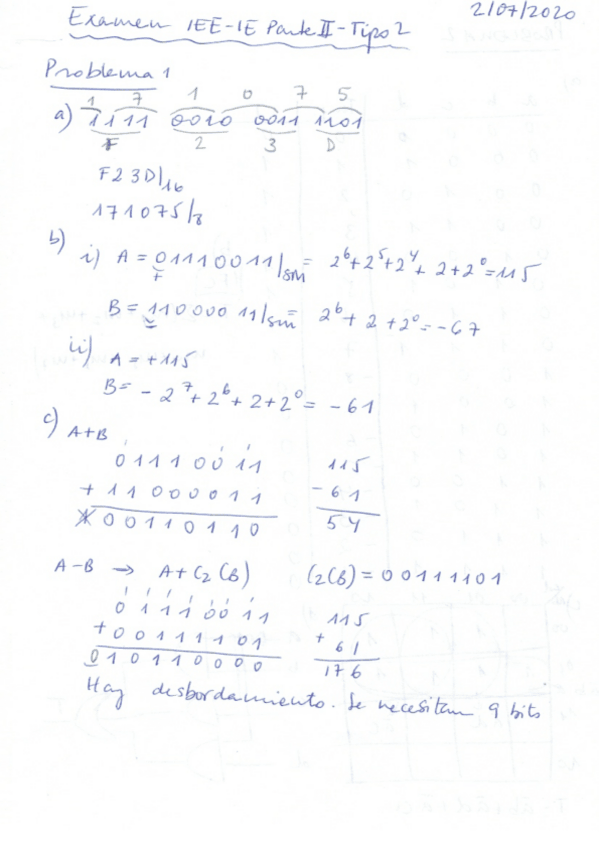 2/07/2020
Examen IEE-IE Parte II - Tipo 2
Problema 1
1 7 1 0 7 5
a) 1111 0010 0011 1101
F 2 3 D
F23D|16
171075|8
b)
i) A = 01110011|SM = 2^6+2^5+2^4+2+2^0=115
+
B = 11000011|SM = 2^6+2+2^0=-67
-
ii)
A = +115
B = -2^7+2^6+2+2^0 = -61
c) A+B
01110011 115
+11000011 -61
100110110 54
A-B → A+C2(B) C2(B) = 00111101
01110011 115
+00111101 +61
010110000 176
Hay desbordamiento. Se necesitan 9 bits